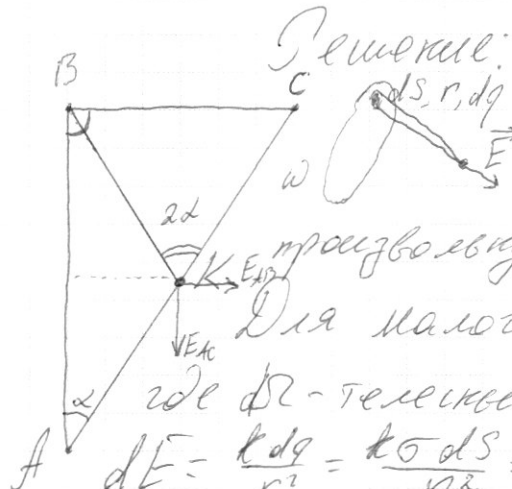 Решение:
B
C
dS, r, dq
E
ω
2α
K E_AB
произвольну
Для малог
E_AC
α
где dΩ - телесные
A
dE = k dq / r² = kσ dS / r² =